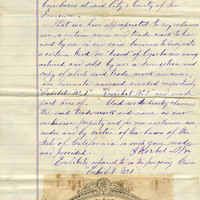 business at said city & county of San
Francisco.
That we have appropriated to our exclusive
use a certain name and trade mark to be
used by us in our said business to designate
a certain kind or brand of
and sold by us a description and
copy of which said trade mark and name,
are hereunto annexed marked respectively
"Exhibit No 1" "Exhibit No 2" and made
part hereof. And we hereby claim
the said trademark and name as our
exclusive property and to our exclusive use
under and by virtue of the laws of the
State of California in such case made
and provided. Korbel & Bro
Exhibits referred to in the foregoing claim
Exhibit No 1